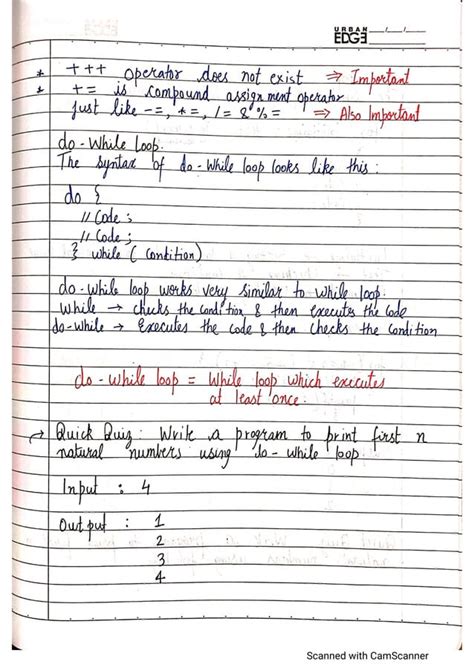 URBAN
EDGE
* +++ operator does not exist ⇒ Important
* += is compound assignment operator
just like -=, *=, /= & %= ⇒ Also Important
do-While Loop.
The syntax of do-While loop looks like this:
do {
// Code ;
// Code ;
} while ( Condition)
do-while loop works very similar to while loop.
While → checks the condition & then executes the code
do-while → Executes the code & then checks the condition
do-while loop = While loop which executes
at least once.
→ Quick Quiz: Write a program to print first n
natural numbers using do-while loop.
Input : 4
Output : 1
2
3
4
Scanned with CamScanner